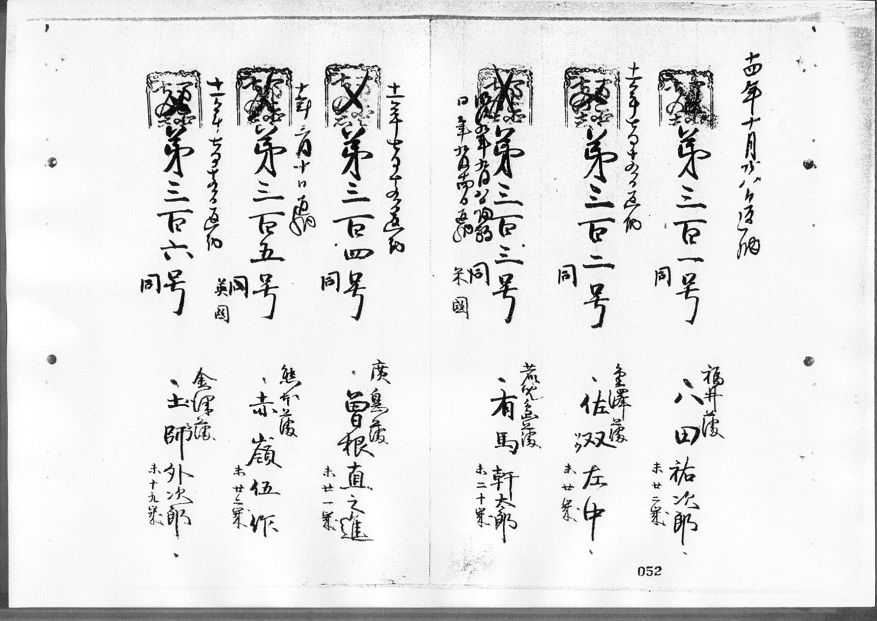 十四年十月廿八日返納
第三百一号
同
福井藩
八田祐次郎
未廿二歳
十一年七月十五日返納
第三百二号
同
金澤藩
佐双左中
未廿歳
第三百三号
同
米國
有馬軒太郎
未二十歳
十一年七月十五日返納
第三百四号
同
廣島藩
曽根直之進
未廿一歳
十年三月十日返納
第三百五号
同
英國
熊本藩
赤嶺伍作
十一年七月十五日返納
第三百六号
同
金澤藩
土師外次郎
未十九歳
052